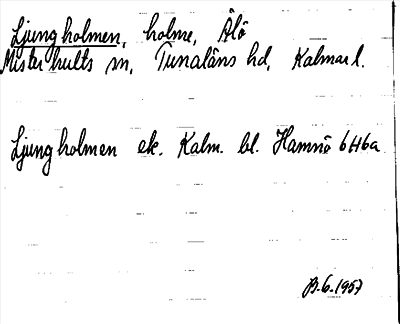 Ljungholmen, holme, Älö
Misterhults sn, Tunaläns hd, Kalmar l.
Ljungholmen ek. Kalm. bl. Hamnö 6H6a
B.G. 1957